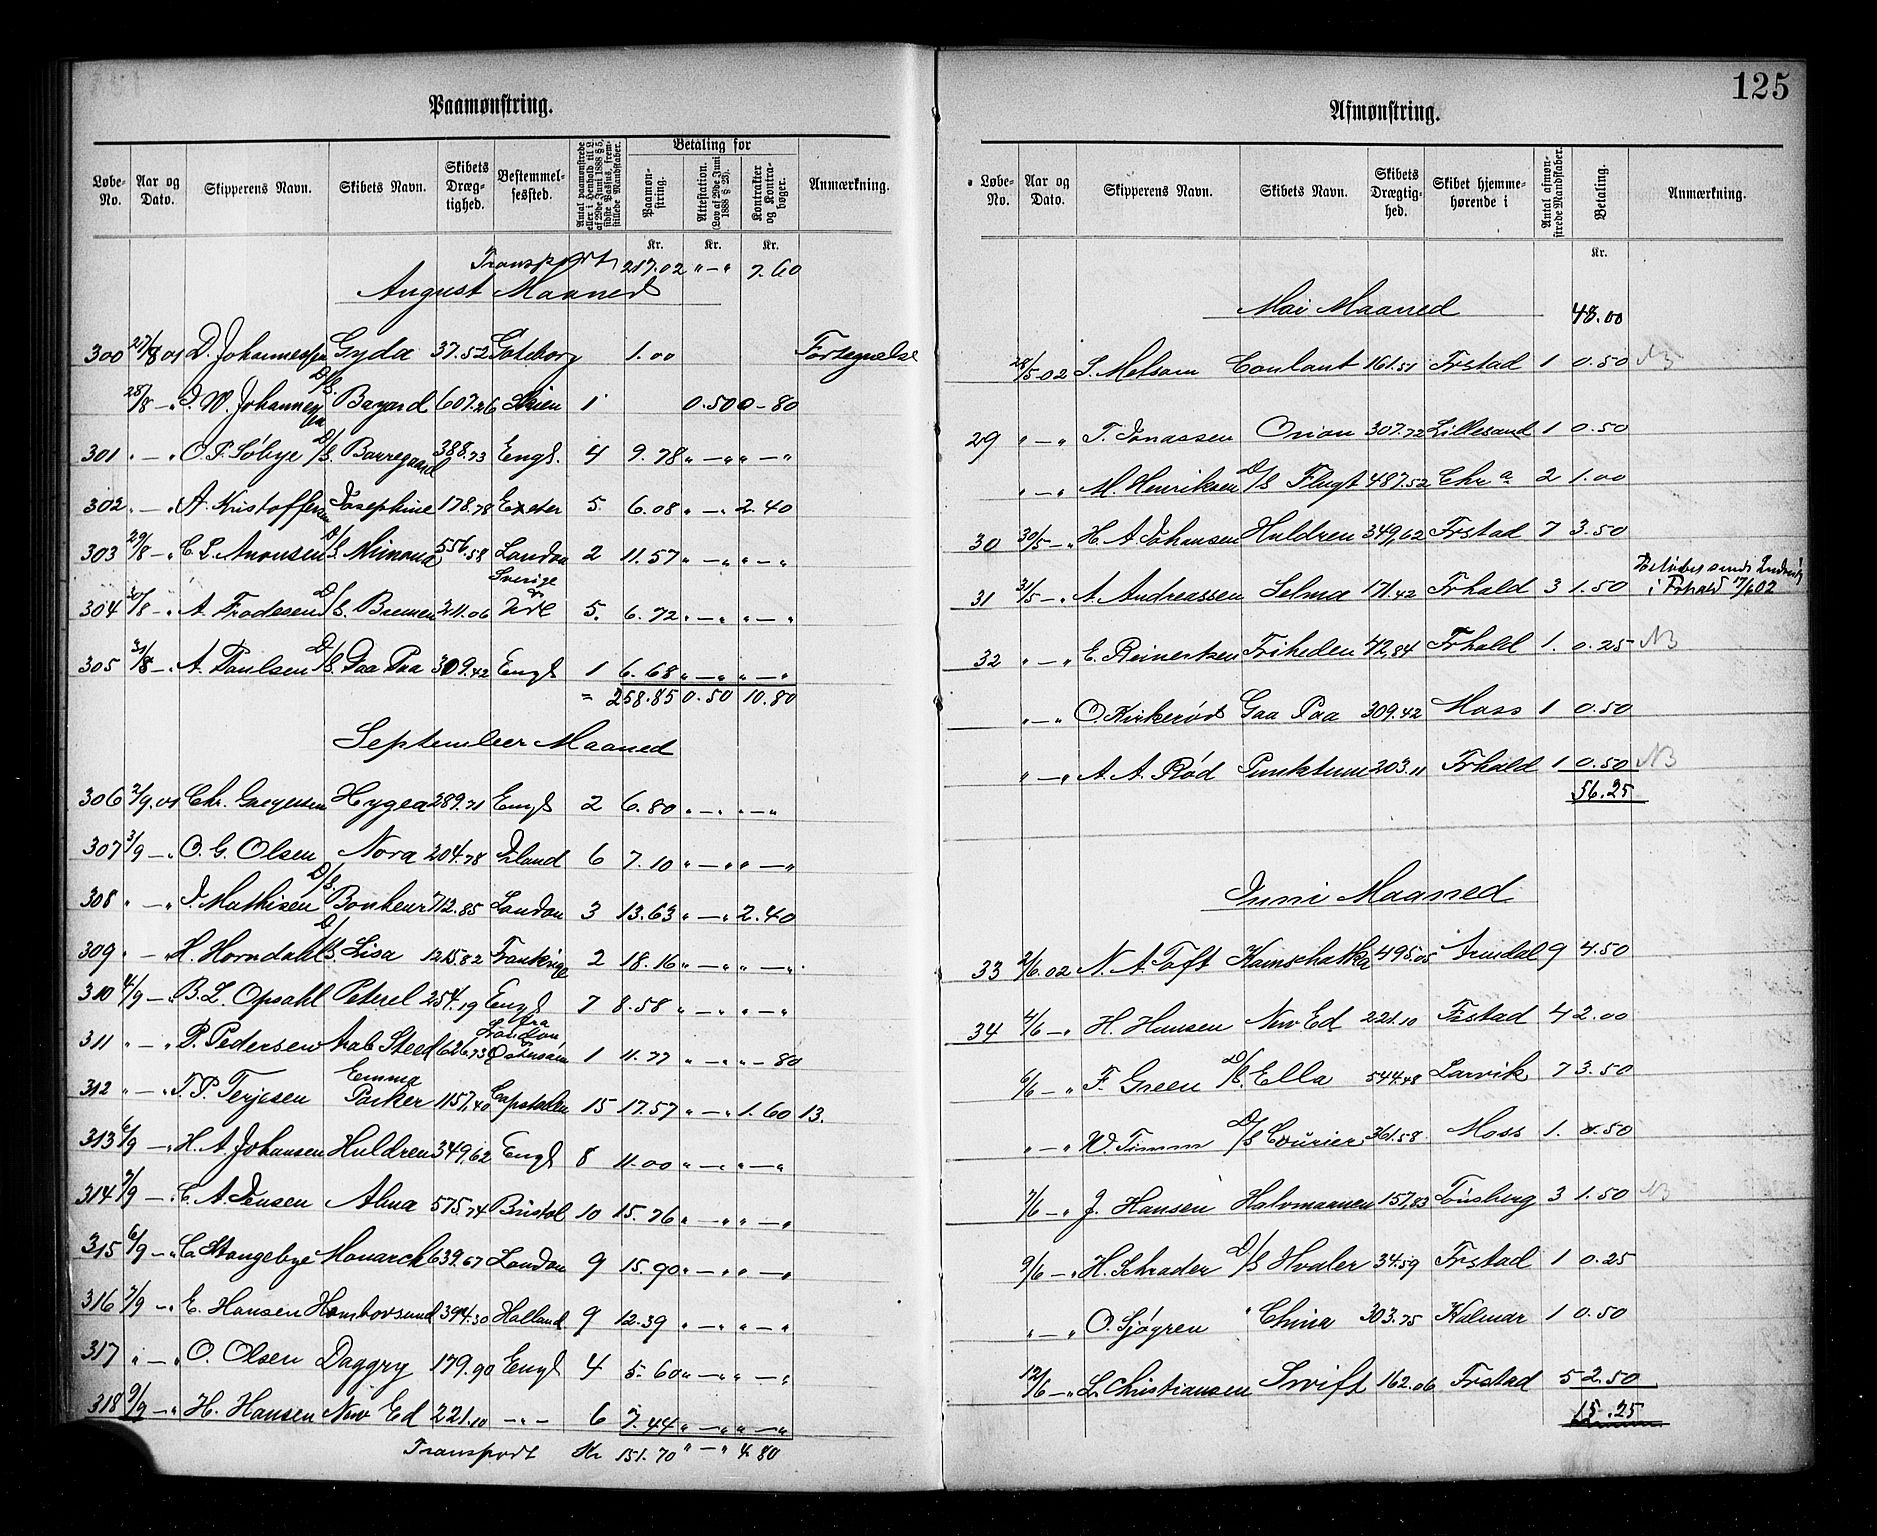 125
Paamønstring.
Løbe-No. | Aar og Dato. | Skipperens Navn. | Skibets Navn. | Skibets Dræg-tighed. | Bestemmel-sessted. | Antal paamønstrede eller i Henhold til L. af 29de Juni 1888 § 5, sidste Passus, frem-stillede Mandskaber. | Betaling for | Paamøn-string. | Attestation. (Lov af 29de Juni 1888 § 25). | Kontrakter og Kontra-bøger. | Anmærkning.
Kr. Kr. Kr.
Transport 217.02 " — " 7.60
August Maaned
300 27/8 01 D. Johannessen Gyda 37.52 Goteborg 1.00 Fortegnelse
28/8 — " J. W. Johannessen D/S. Bayard 607.26 Skien 1 0.50 0-80
301 " — " O. P. Söbye D/S. Borregaard 388.73 Engl. 4 9.78 " — " " — "
302 " — " A. Kristoffersen Josephine 178.78 Exeter 5. 6.08 " — " 2.40
303 29/8 — " C. P. Aronsen D/S. Mimona 556.58 London 2 11.57 " — " " — "
304 30/8 — " A. Frodesen D/S. Bremen 211.06 Sverige 5. 6.72 " — " " — "
305 31/8 — " A. Paulsen D/S. Gaa Paa 309.42 Engl 1 6.68 " — " " — "
= 258.85 0.50 10.80
September Maaned
306 2/9.01 Chr. Gregersen Hygea 289.71 Engl 2 6.80 " — " " — "
307 3/9 — " O. G. Olsen Nora 204.78 Irland 6 7.10 " — " " — "
308 " — " J. Mathisen D/S. Bonheur 712.85 London 3 13.63 " — " 2.40
309 " — " H. Horndahl D/S. Lisa 1215.82 Frankrige 2 18.16 " — " " — "
310 4/9 — " B. L. Opsahl Peterel 254.19 Engl 7 8.58 " — " " — "
311 " — " P. Pedersen Arab Steed 626.73 fra London 1 11.77 " — " " — 80
312 " — " T. P. Terjesen Emma Parker 1157.40 Capstaden 15 17.57 " — " 1.60 13.
313 6/9 — " H. A. Johansen Huldren 349.62 Engl 8 11.00 " — " " — "
314 7/9 — " C. A. Jensen Alma 575.74 Bristol 10 15.76 " — " " — "
315 6/9 — " C. Stangebye Monarch 639.67 London 9 15.90 " — " " — "
316 7/9 — " E. Hansen Homborsund 394.30 Holland 9 12.39 " — " " — "
317 " — " O. Olsen Daggry 179.90 Engl 4 5.60 " — " " — "
318 9/9 — " H. Hansen New Ed 221.10 " — " 6 7.44 " — " " — "
Transport Kr 151.70 " — " 4.80
Afmønstring.
Løbe-No. | Aar og Dato. | Skipperens Navn. | Skibets Navn. | Skibets Drægtig-hed. | Skibet hjemme-hørende i | Antal afmøn-strede Mandskaber. | Betaling. | Anmærkning.
Kr.
Mai Maaned 48.00
28/5-02 S. Melsom Conlant 161.51 Frstad 1 0.50 NB
29 " — " T. Jonassen Orion 307.72 Lillesand 1 0.50
" — " M. Henriksen D/S Flugt 487.52 Chr a 2 1.00
30 30/5 — " H. A. Johansen Huldren 349.62 Frstad 7 3.50
31 31/5 — " A. Andreassen Selma 171.42 Frhald 3 1.50 i Frhald 7/6 02
32 " — " E. Reinertsen Friheden 42.84 Frhald 1. 0.25 NB
" — " O. Kirkeröd Gaa Paa 309.42 Moss 1 0.50
" — " A. A. Röd Punktum 203.11 Frhald 1 0.50 NB
56.25
Juni Maaned
33 2/6.02 N. A. Toft Kamschatka 495.05 Arendal 9 4.50
34 4/6 — " H. Hansen New Ed 221.10 Frstad 4 2.00
6/6 — " F. Green D/S. Ella 544.48 Larvik 7 3.50
" — " W. Timm D/S Courier 361.58 Moss 1. 0.50
7/6 — " J. Hansen Halvmaanen 157.83 Tönsberg 3 1.50 NB
9/6 — " H. Schrader D/S Hvaler 34.59 Frstad 1 0.25
" — " O. Sjögren China 303.75 Kalmar 1 0.50
12/6 — " L. Christiansen Swift 162.06 Frstad 5 2.50
15.25